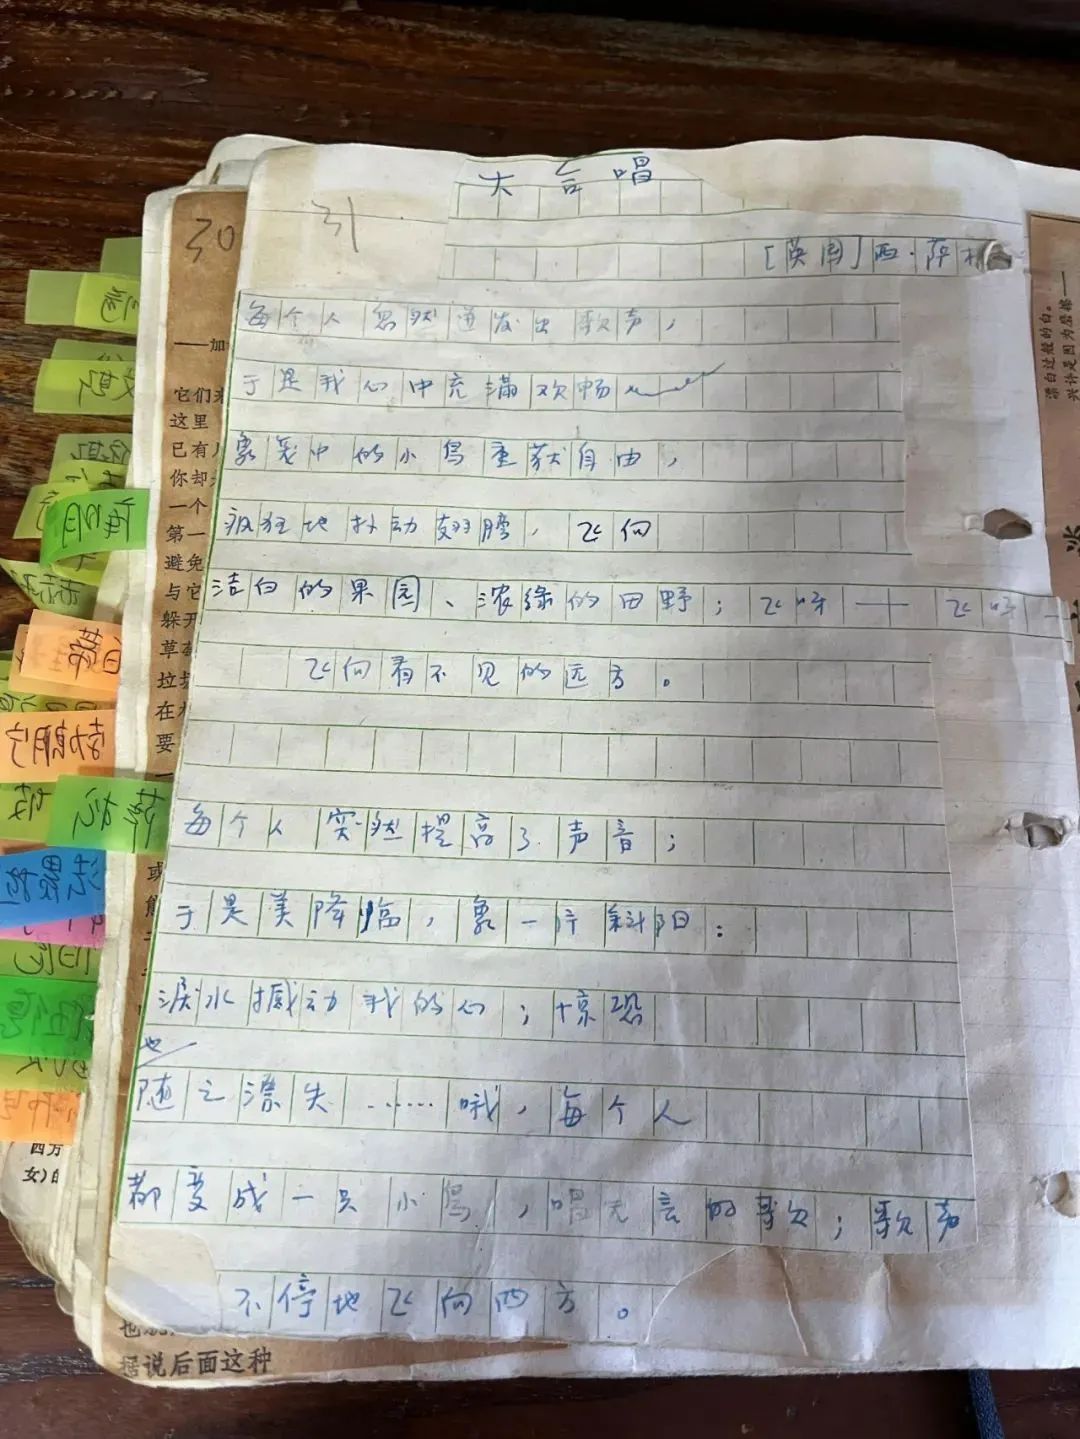 大合唱
31
30
[英国]西·萨
每个人忽然迸发出歌声，
于是我心中充满欢畅
象笼中的小鸟重获自由，
疯狂地扑动翅膀，飞向
洁白的果园、浓绿的田野；飞呀——飞呀—
飞向看不见的远方。
每个人突然提高了声音；
于是美降临，象一片斜阳：
泪水撼动我的心；惊恐
也
随之漂失……哦，每个人
都变成一只小鸟，唱无言的歌；歌声
不停地飞向四方。
——加
它们
这里
已有
你却
一个
第一
避免
与它
躲开
草
垃
在
要
或
四方
女)的
据说后面这种
漂白过般的白。
兴许是因为磨擦——